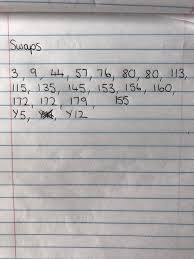 Swaps
3, 9, 44, 57, 76, 80, 80, 113,
115, 135, 145, 153, 154, 160,
172, 172, 179, 155
Y5, Y12